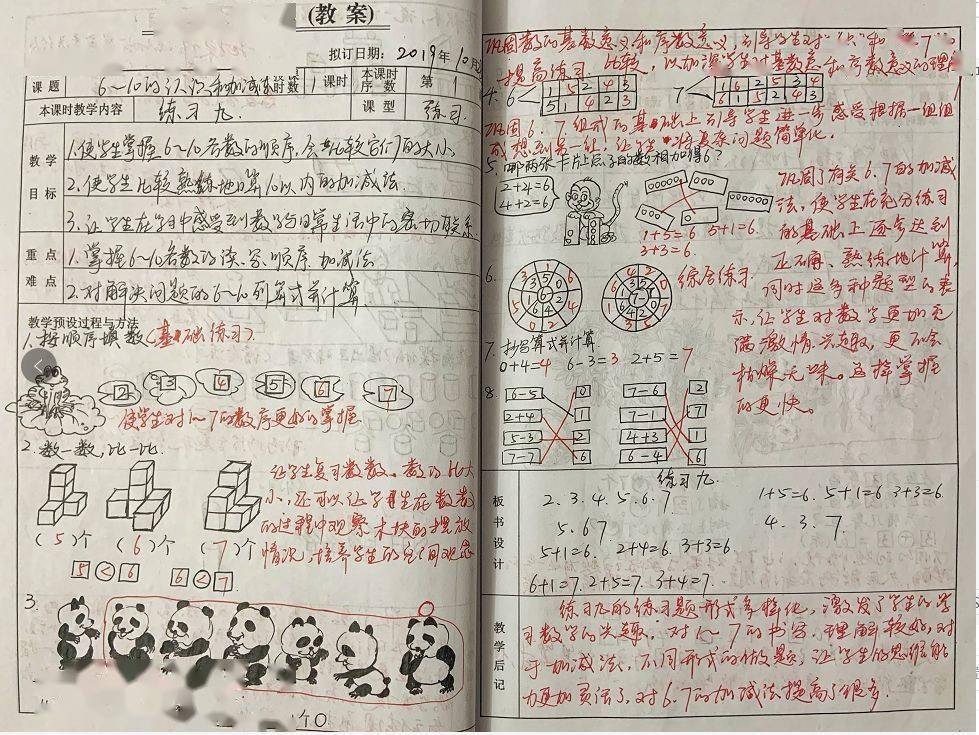 (教案)
拟订日期：2019年10月
课题 6～10的认识和加减法 课时数 1课时 本课时序数 第1
本课时教学内容 练习九. 课型 练习.
教学目标
1.使学生掌握6～10各数的顺序,会比较它们的大小.
2.使学生比较熟练地口算10以内的加减法.
3.让学生在学习中感受到数学与日常生活中的密切联系.
重点难点
1.掌握6～10各数的读、写、顺序 加减法
2.对解决问题的6～10列算式并计算.
教学预设过程与方法
1.按顺序填数(基础练习).
2 3 4 5 6 7
使学生对1～7的数序更好的掌握
2.数一数,比一比.
让学生复习数数、数的比大
小,还可以让学生在数数
的过程中观察木块的摆放
情况,培养学生的空间观念
(5)个 (6)个 (7)个
5<6 6<7
3.
个0
巩固数的基数意义和序数意义,引导学生对
提高练习. 比较,以加深学生对基数意和序数意义的理解
4. 6 1 5 2 4 3
5 1 4 2 3
7 1 6 2 5 3 4
6 1 5 2 4 3
巩固6.7组成的基础上引导学生进一步感受根据一组组
成想到另一组,让 将复杂问题简单化.
5.哪两张卡片上点子的数相加得6?
2+4=6
4+2=6
1+5=6 5+1=6.
3+3=6.
巩固了有关6.7的加减
法,使学生在充分练习
的基础上逐步达到
正确、熟练地计算,
同时这多种题型的表
示,让学生对数学更加充
满激情、兴趣,更不会
枯燥无味。这样掌握
的更快。
6.
综合练习
7.抄写算式并计算.
0+4=4 6-3=3 2+5=7
8.
6-5 0 7-6 2
2+4 1 7-1 7
5-3 2 4+3 1
7-7 6 6-4 6
板书设计
练习九.
2.3.4.5.6.7 1+5=6. 5+1=6 3+3=6
5.6 7 4.3.7.
5+1=6. 2+4=6. 3+3=6
6+1=7. 2+5=7. 3+4=7.
教学后记
练习九的练习题形式多样化,激发了学生的学
习数学的兴趣. 对1～7的书写、理解较好,对
于加减法、不同形式的做题,让学生的思维能
力更加灵活了,对6.7的加减法提高了很多.